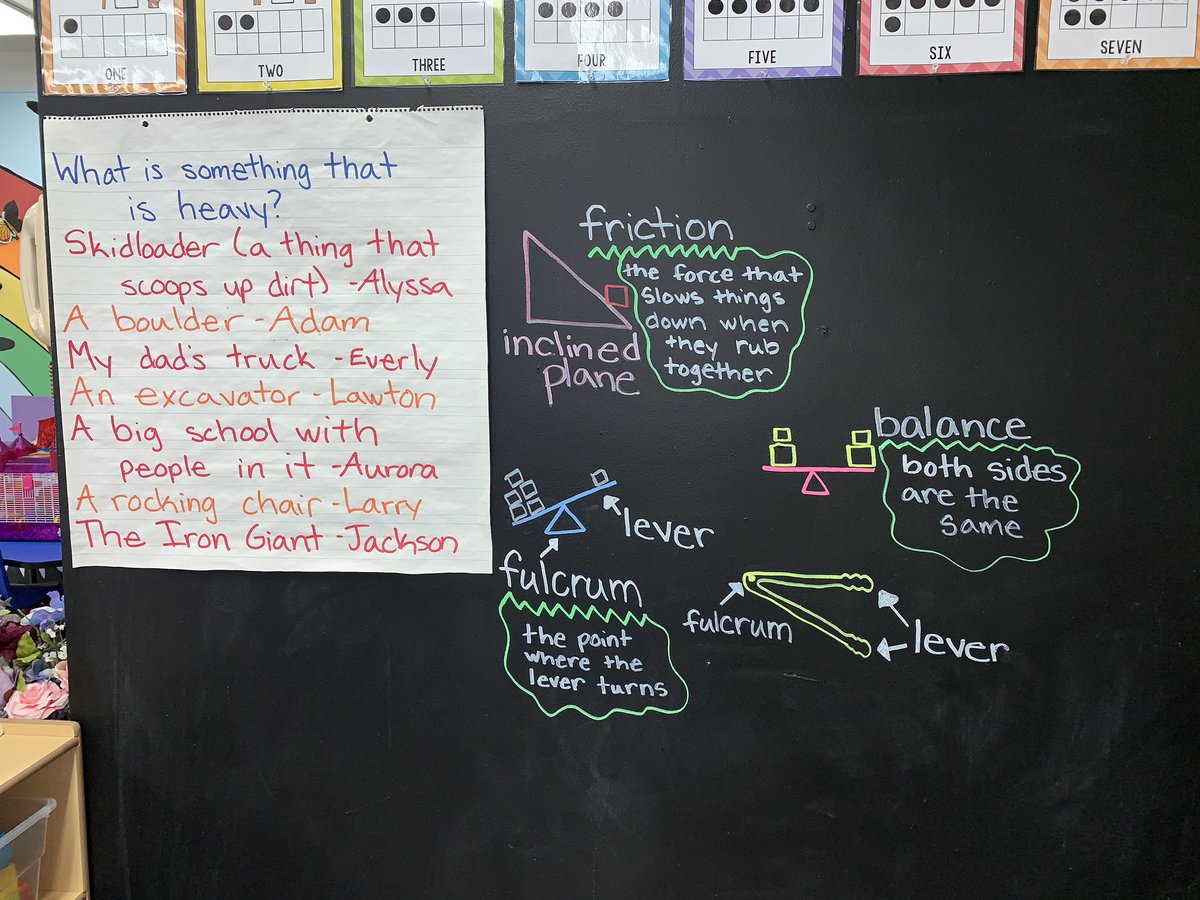 ONE
TWO
THREE
FOUR
FIVE
SIX
SEVEN
What is something that
is heavy?
Skidloader (a thing that
scoops up dirt) -Alyssa
A boulder -Adam
My dad's truck -Everly
An excavator -Lawton
A big school with
people in it -Aurora
A rocking chair -Larry
The Iron Giant -Jackson
friction
the force that
slows things
down when
they rub
together
inclined
plane
balance
both sides
are the
same
lever
fulcrum
the point
where the
lever turns
fulcrum
lever